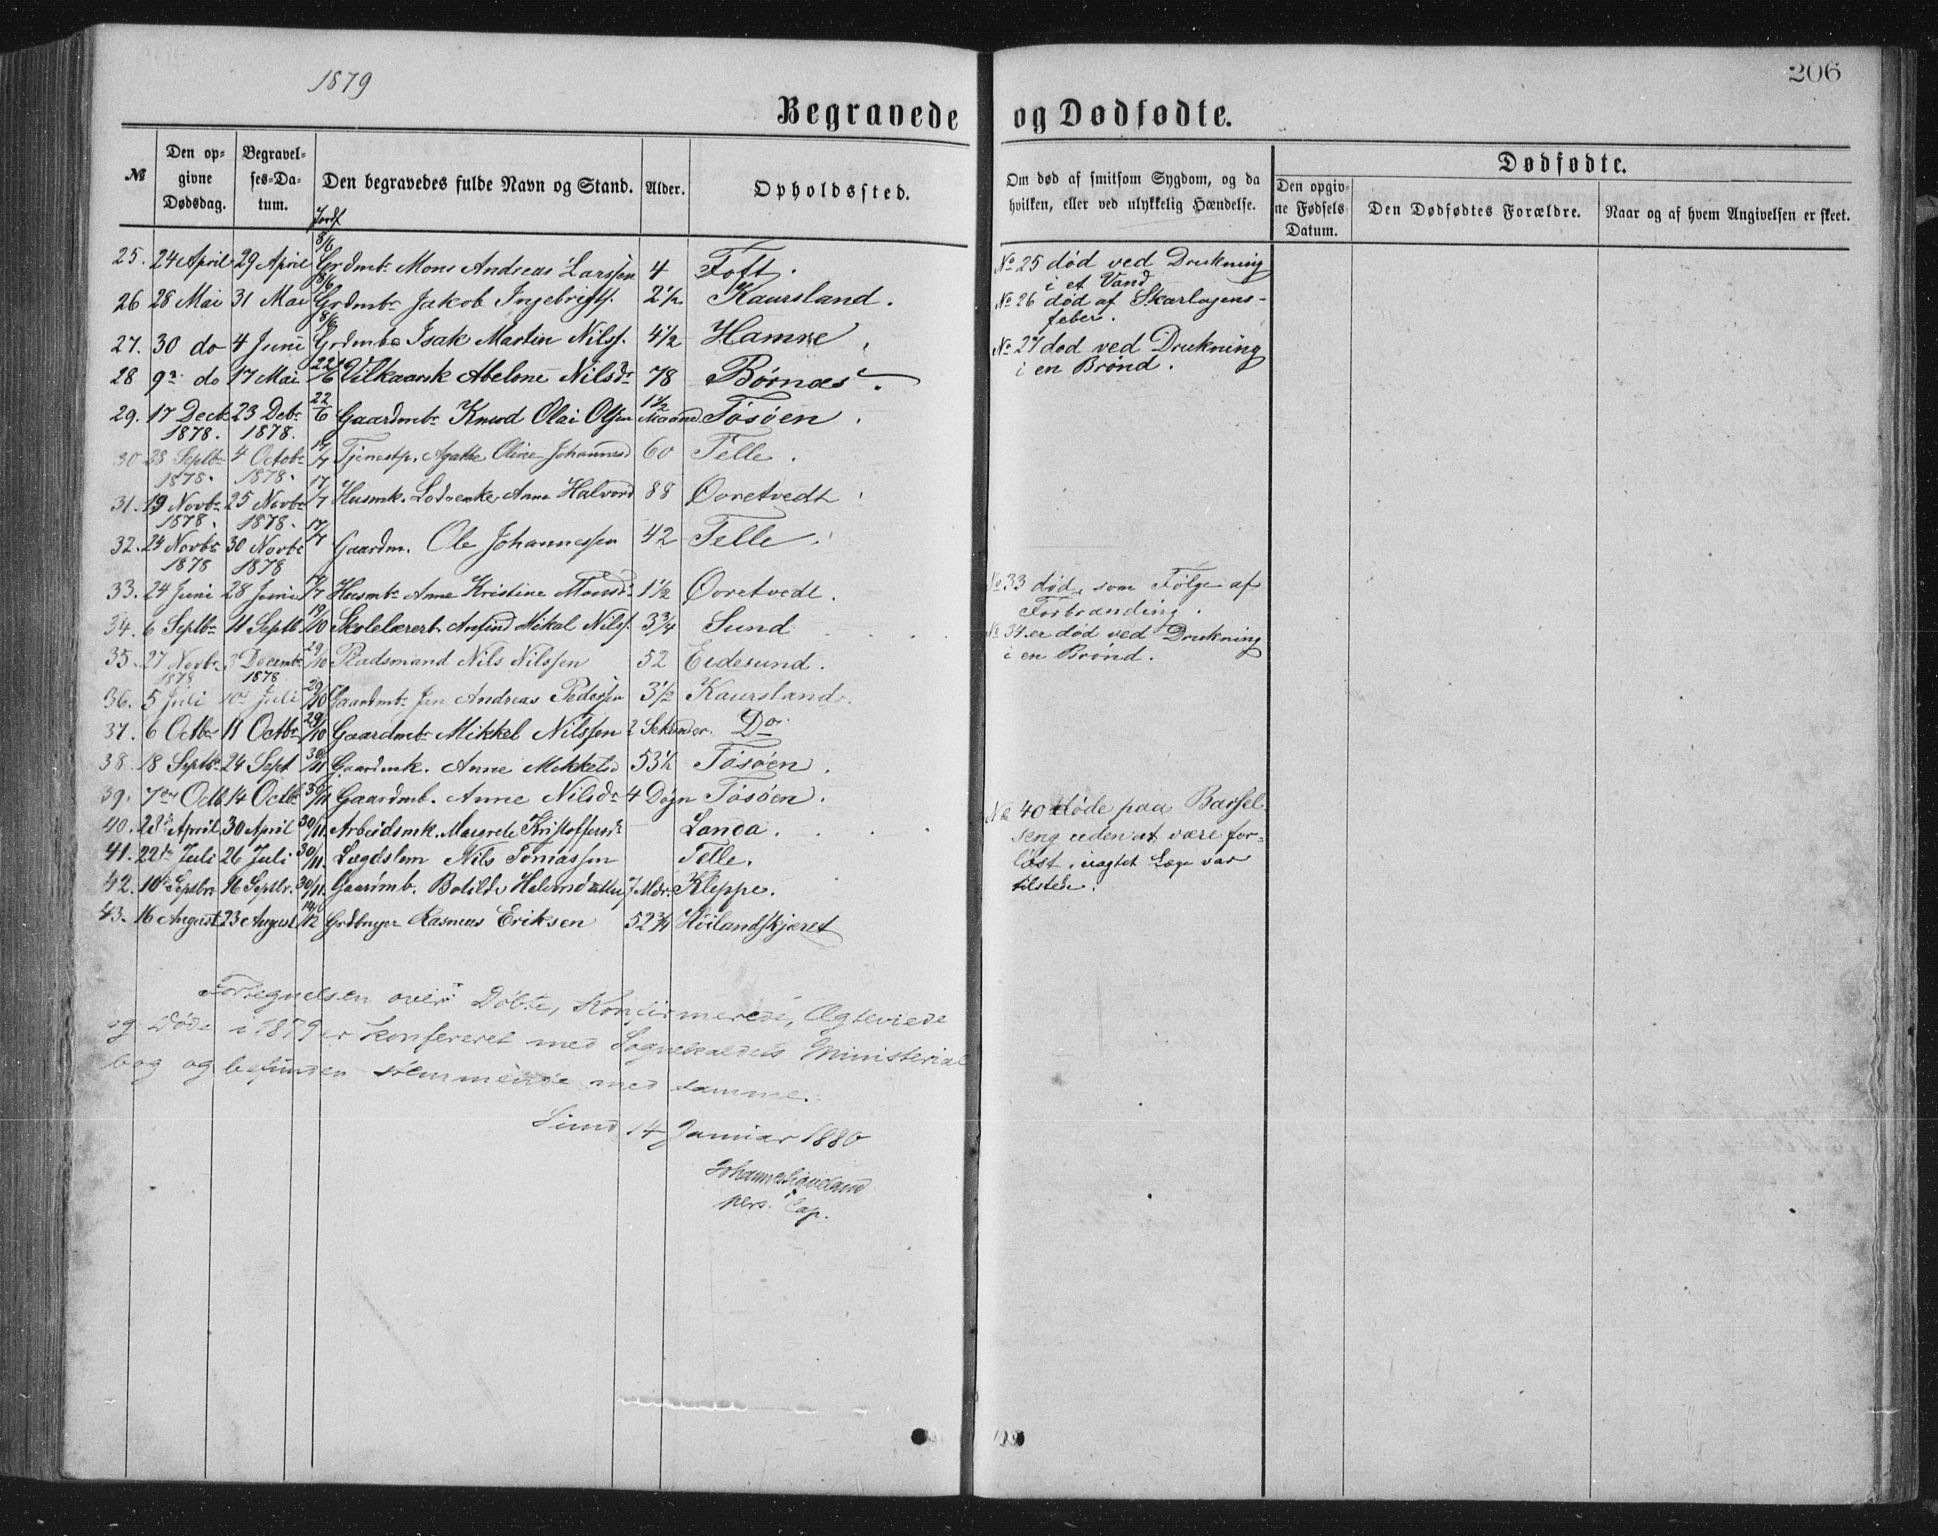 1879
206
Begravede og Dødfødte.
№
Den opgivne Dødsdag.
Begravelses-Datum.
Den begravedes fulde Navn og Stand.
Alder.
Opholdssted.
Om død af smitsom Sygdom, og da hvilken, eller ved ulykkelig Hændelse.
Dødfødte.
Den opgivne Fødsels Datum.
Den Dødfødtes Forældre.
Naar og af hvem Angivelsen er skeet.
Jordf
25. 24 April 29 April 8/6 Grdmbr Mons Andreas Larssen 4 Toft.
26 28 Mai 31 Mai 8/6 Grdmbr Jakob Ingebrigts. 2½ Kaursland.
27. 30 do 4 Juni 8/6 Grdmbr Isak Martin Nilss. 4½ Hamre
28 9de do 17 Mai 22/6 Vilkaarsk Abelone Nilsdr 78 Børnæs.
29. 17 Decbr 1878. 23 Debr 1878. 22/6 Gaardmbr Knud Olai Olsen 1½ Maaned Tøsøen.
30 28 Septbr 1878. 4 Octobr 1878. 17/7 Tjenestp. Agathe Oline Johannesd 60 Telle.
31. 19 Novbr 1878. 25 Novbr 1878. 17/7 Husmk. Anne Halvord 88 Ovretvedt.
32. 24 Novbr 1878 30 Novbr 1878 17/7 Gaardm. Ole Johannessen 42 Telle.
33. 24 Juni 28 Juni 17/7 Husmbr Anne Kristine Monsdr 1½ Ovretvedt.
34. 6 Septbr 11 Septb. 19/10 Skolelærerb. Mikal Nilss. 3¾ Sund
35. 27 Novbr 1878 3 Decembr 1878 29/10 Pladsmand Nils Nilssen 52 Eidesund.
36. 5 Juli 10de Juli 29/10 Gaardmbr Jan Andreas Pederssen 3½ Kaursland.
37. 6 Octbr 11 Octbr 29/10 Gaardmbr Mikkel Nilssen 2 Sekunder. Do
38. 18 Septbr 24 Sept 30/11 Gaardmk. Anne Mikkelsd 53½ Tøsøen.
39. 7de Octb 14 Octbr 30/11 Gaardmb. Anne Nilsdr 4 Døgn Tøsøen.
40. 28de April 30 April 30/11. Arbeidsmk. Margrete Kristoffersdr Landa.
41. 22de Juli 26 Juli 30/11. Lægdslem Nils Toniassen Telle.
42. 10de Septbr 16 Septbr. 30/11. Gaardmb. Botilde Helmsdatter 7 Mdr. Kleppe.
43. 16 August 23 August 14/12 Grdbruger Rasmus Eriksen 52¾ Høilandskjæret
No 25 død ved Drukning
i et Vand
No 26 død af Skarlagens-
feber.
No 27 død ved Drukning
i en Brønd.
No 33 død, som Følge af
Forbrænding.
No 34 er død ved Drukning
i en Brønd.
No 40 døde paa Barsel
seng uden at være for-
løst, uagtet Læge var
tilstede.
Fortegnelsen over Døbte, Konfirmerede, Ægteviede
og Døde i 1879 er konfereret med Sognekaldets Ministerial
bog og befunden stemmende med samme.
Sund 14 Januar 1880
Johannes
pers. Cap.